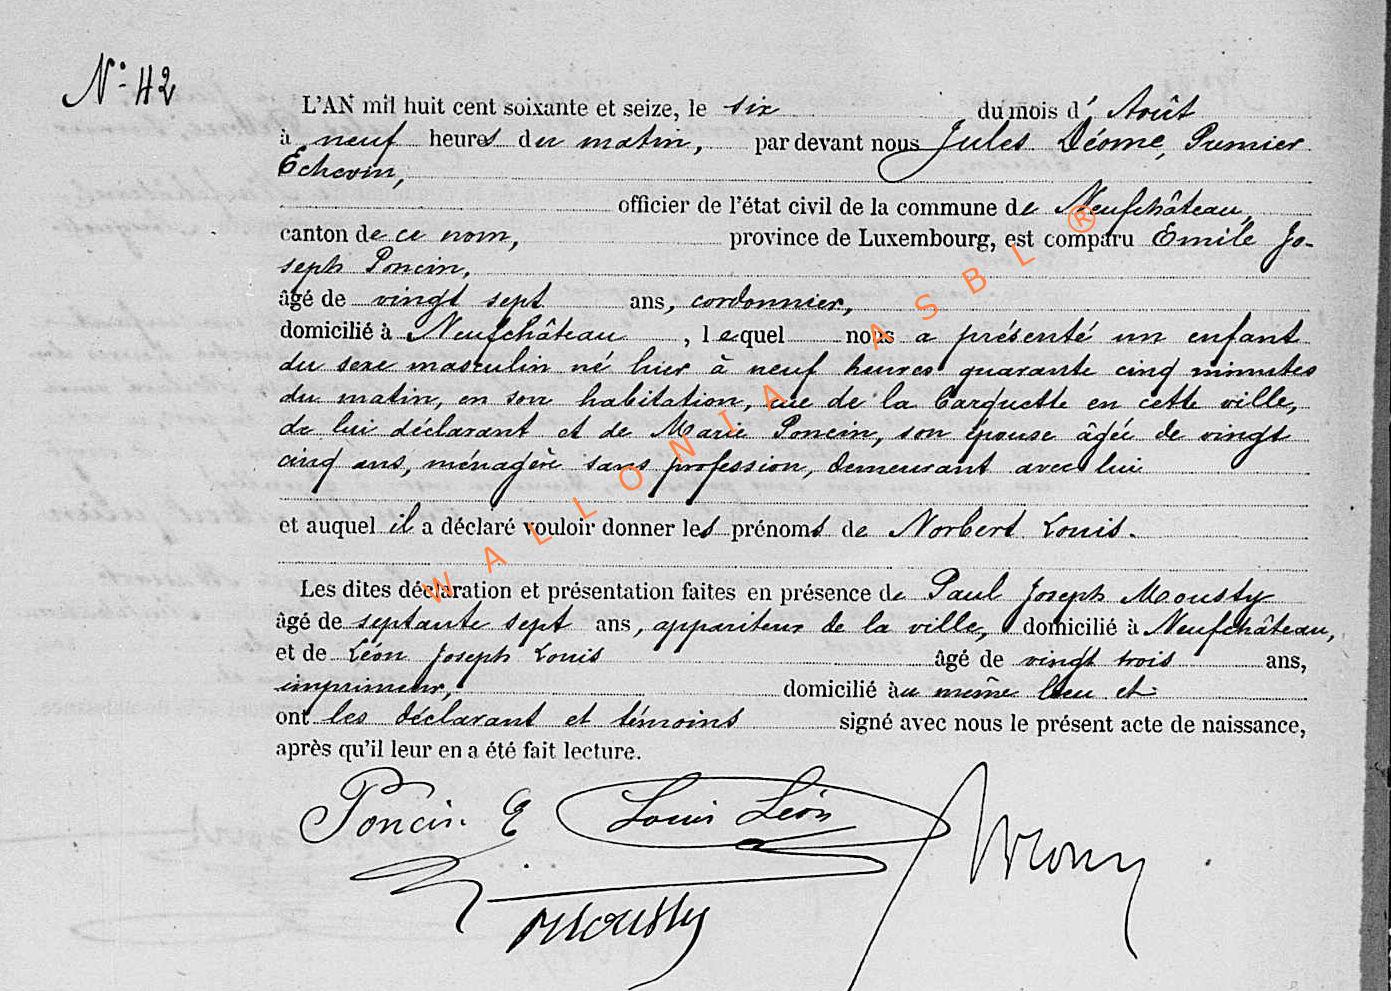 N° 42
L'AN mil huit cent soixante et seize, le six du mois d'Août
à neuf heures du matin, par devant nous Jules Déome, Premier
Echevin,
officier de l'état civil de la commune de Neufchâteau,
canton de ce nom, province de Luxembourg, est comparu Emile Jo-
seph Poncin,
âgé de vingt sept ans, cordonnier,
domicilié à Neufchâteau, lequel nous a présenté un enfant
du sexe masculin né hier à neuf heures quarante cinq minutes
du matin, en son habitation, rue de la Barquette en cette ville,
de lui déclarant et de Marie Poncin, son épouse âgée de vingt
cinq ans, ménagère sans profession, demeurant avec lui
et auquel il a déclaré vouloir donner les prénoms de Norbert Louis.
Les dites déclaration et présentation faites en présence de Paul Joseph Mousty
âgé de septante sept ans, appariteur de la ville, domicilié à Neufchâteau,
et de Léon Joseph Louis âgé de vingt trois ans,
imprimeur, domicilié au même lieu et
ont les déclarant et témoins signé avec nous le présent acte de naissance,
après qu'il leur en a été fait lecture.
Poncin E Louis Léon
Mousty
WALLONIA ASBL ®